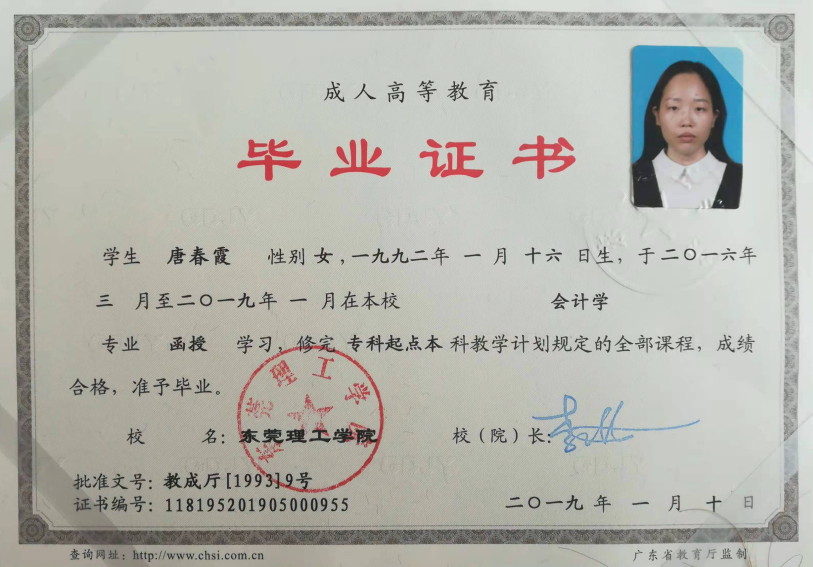 成人高等教育
毕业证书
学生 唐春霞 性别 女，一九九二年 一 月 十六 日生，于二〇一六年
三 月至二〇一九年 一 月在本校 会计学
专业 函授 学习，修完 专科起点本 科教学计划规定的全部课程，成绩
合格，准予毕业。
校 名：东莞理工学院 校（院）长：
批准文号：教成厅[1993]9号
证书编号：118195201905000955 二〇一九 年 一 月 十 日
查询网址：http://www.chsi.com.cn 广东省教育厅监制
东莞理工学院